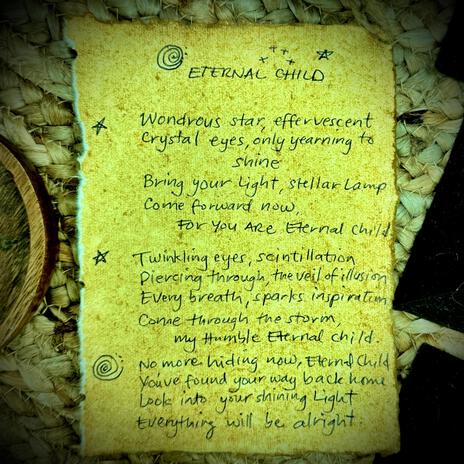 ETERNAL CHILD
Wondrous star, effervescent
Crystal eyes, only yearning to
shine
Bring your Light, stellar Lamp
Come forward now,
FOR YOU ARE Eternal Child
Twinkling eyes, scintillation
Piercing through, the veil of illusion
Every breath, sparks inspiration
Come through the storm,
my Humble Eternal child.
No more hiding now, Eternal Child
You've found your way back home
Look into your shining Light
Everything will be alright.